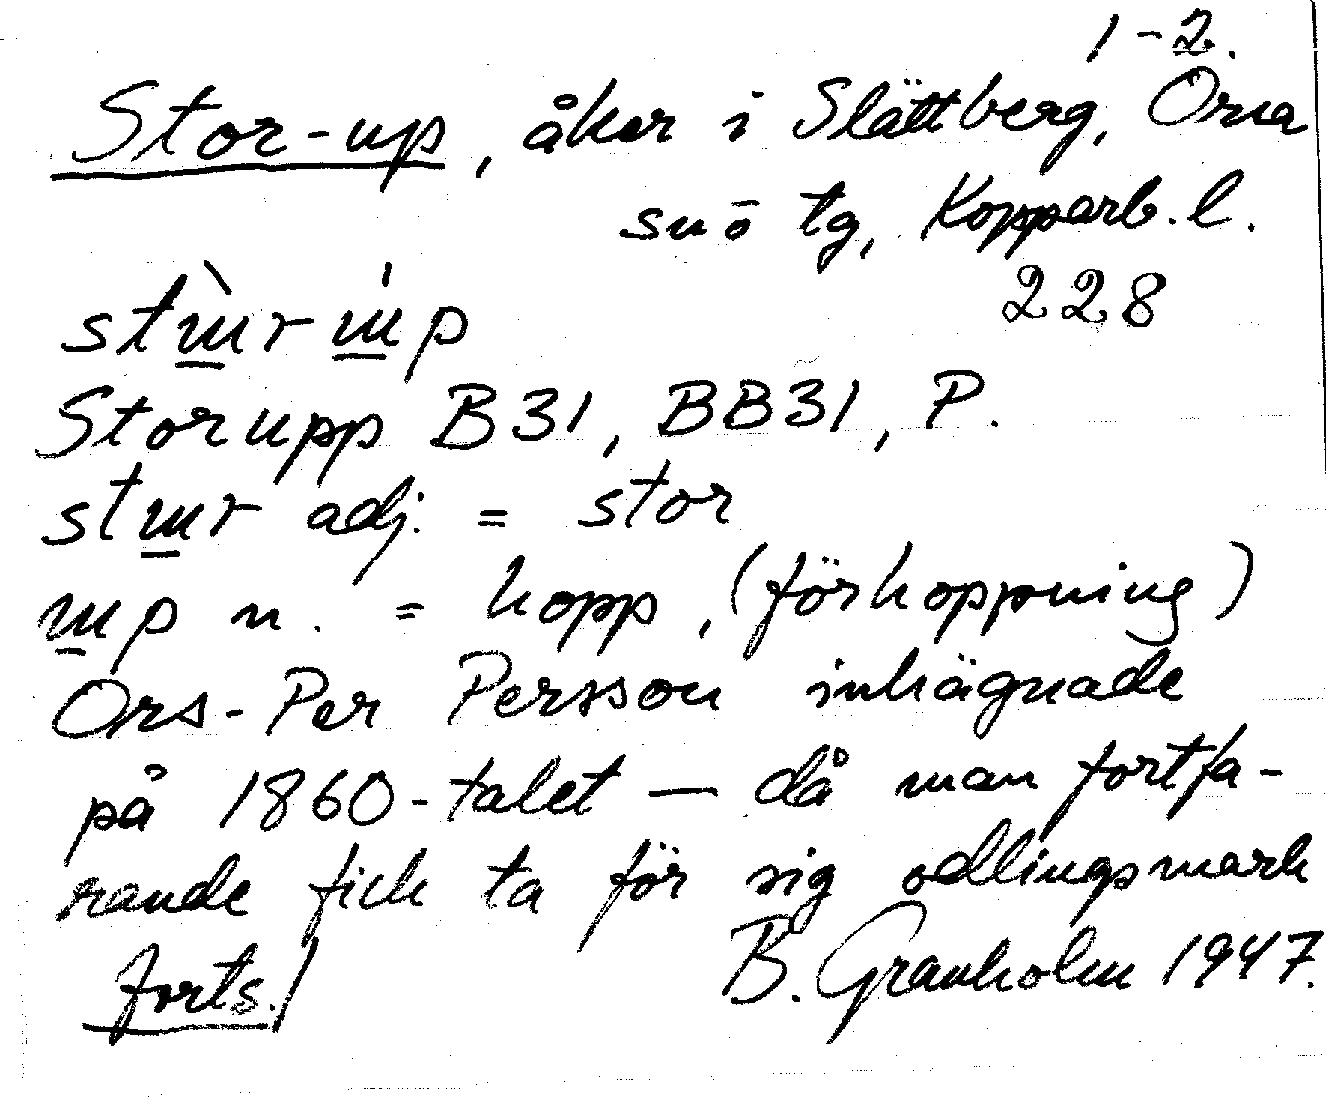 1-2.
Stor-up, åker i Slättberg, Orsa
snö tg, Kopparb. l.
228
Storupp B31, BB31, P.
adj. = stor
n. = hopp, (förhoppning)
Ors-Per Persson inhägnade
på 1860-talet — då man fortfa-
rande fick ta för sig odlingsmark
forts./ B. Granholm 1947.